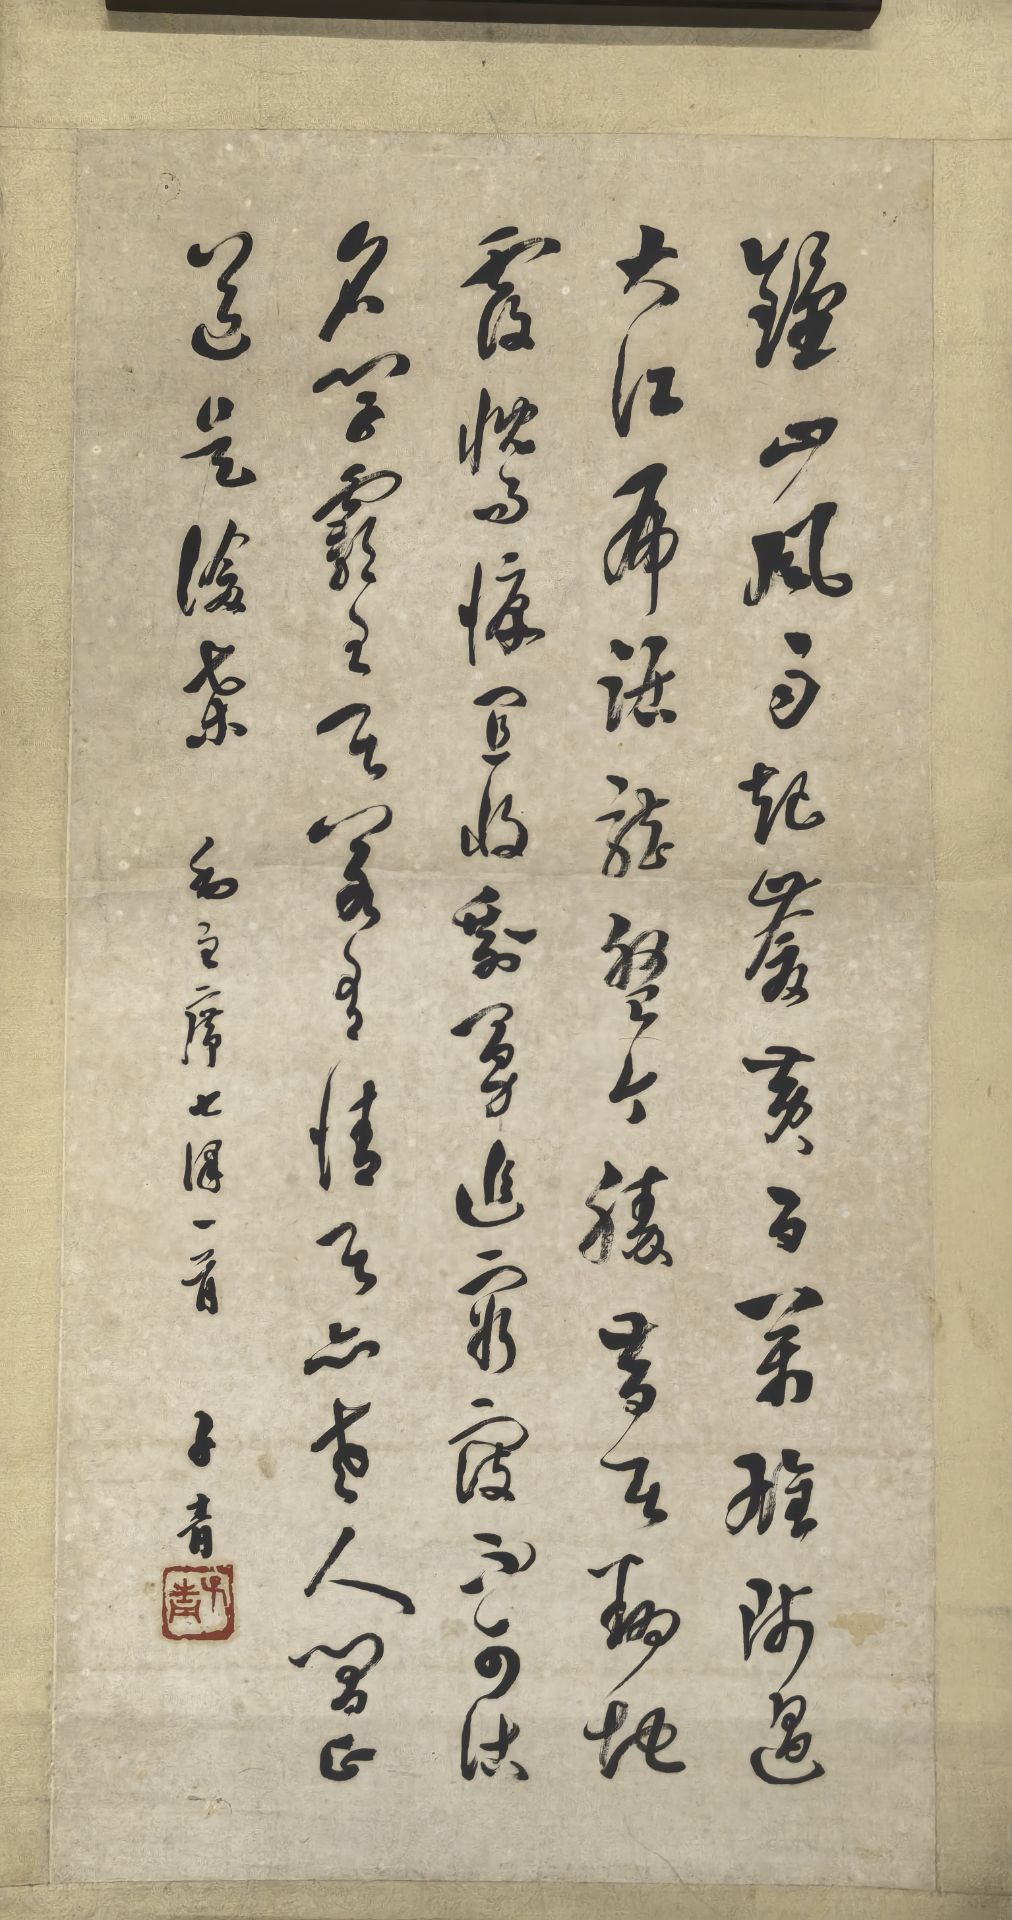 鍾山風雨起蒼黃百萬雄師過
大江虎踞龍盤今勝昔天翻地
覆慨而慷宜將剩勇追窮寇不可沽
名學霸王天若有情天亦老人間正
道是滄桑 毛主席七律一首 子青
子青